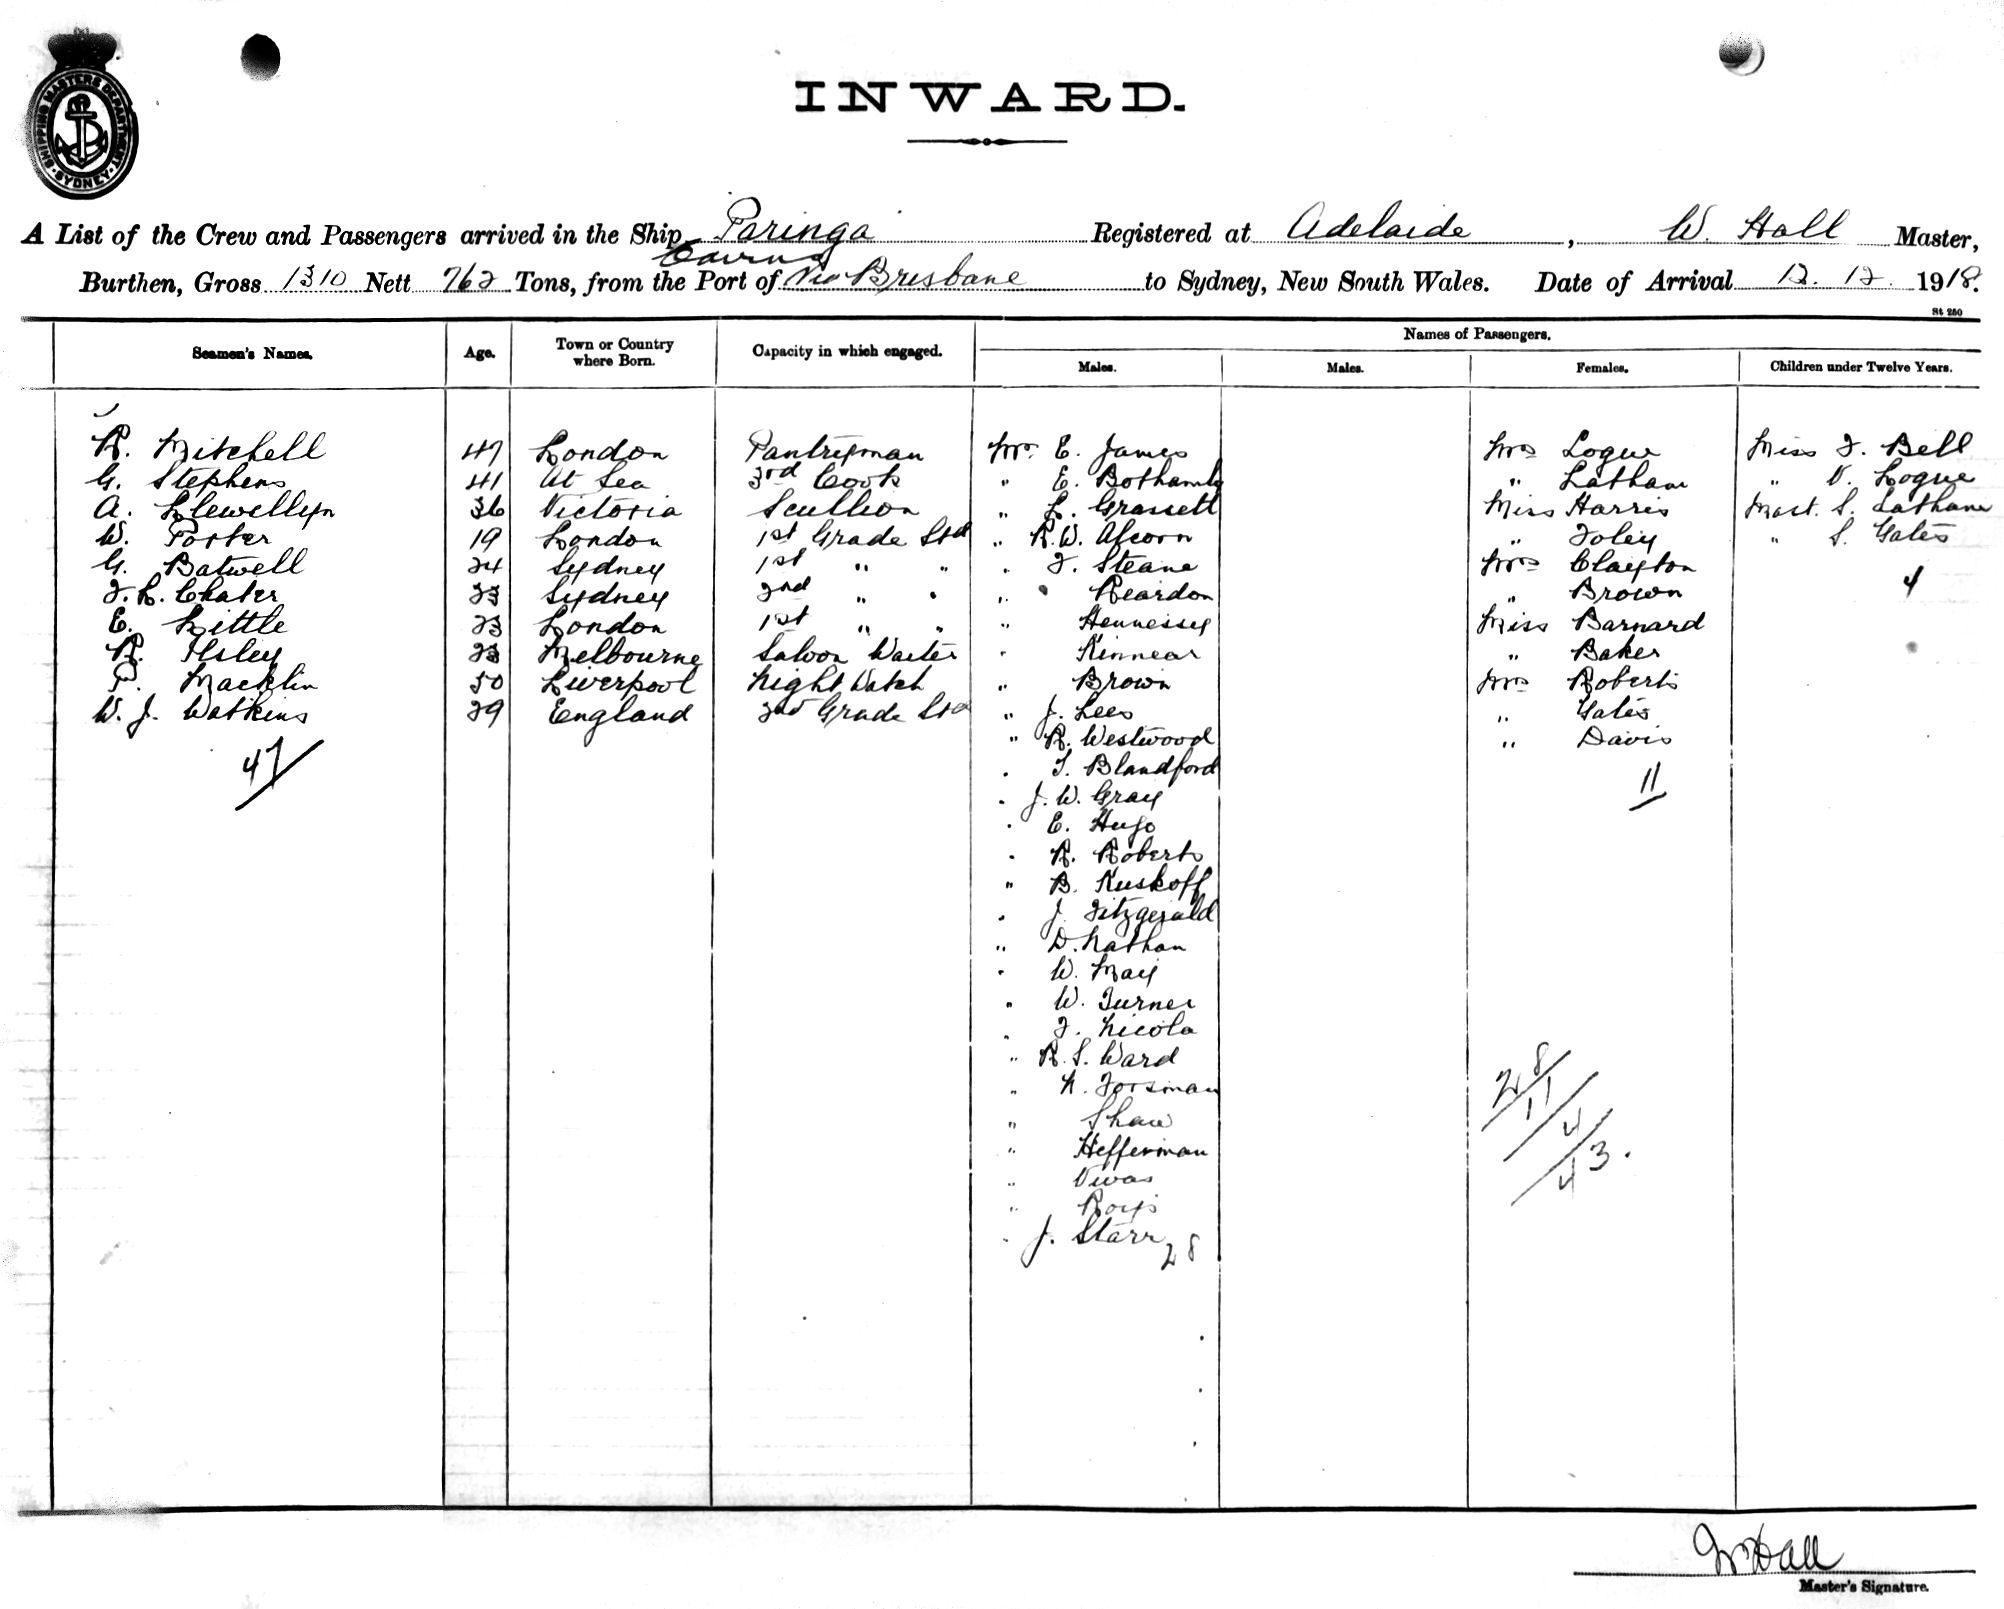 SHIPPING MASTERS DEPARTMENT
SYDNEY
INWARD.
A List of the Crew and Passengers arrived in the Ship Paringa Registered at Adelaide, W. Hall Master,
Cairns
Burthen, Gross 1310 Nett 762 Tons, from the Port of Via Brisbane to Sydney, New South Wales. Date of Arrival 12. 12. 1918.
St 250
Seamen's Names. Age. Town or Country where Born. Capacity in which engaged. Names of Passengers.
Males. Males. Females. Children under Twelve Years.
R. Mitchell 47 London Pantryman Mr. E. James Mrs Logue Miss F. Bell
G. Stephens 41 At Sea 3rd Cook " E. Bothamly " Latham " V. Logue
A. Llewellyn 36 Victoria Scullion " L. Grassett Miss Harris Mast. S. Latham
W. Porter 19 London 1st Grade Std " R.W. Alcorn " Foley " S. Gates
G. Batwell 24 Sydney 1st " " " F. Steane Mrs Clayton 4
F. L. Chater 23 Sydney 2nd " " " Reardon " Brown
E. Little 23 London 1st " " " Hennessy Miss Barnard
R. Ilsley 23 Melbourne Saloon Waiter " Kinnear " Baker
P. Macklin 50 Liverpool Night Watch " Brown Mrs Roberts
W. J. Watkins 29 England 2nd Grade Std " J. Lees " Gates
47 " R. Westwood " Davis
" T. Blandford 11
" J. W. Gray
" E. Hugo
" R. Roberts
" B. Kuskoff
" J. Fitzgerald
" D. Nathan
" W. May
" W. Turner
" F. Nicola
" R. S. Ward
" N. Forsman
" Shaw
" Heffernan
" Vivas
" Roys
" J. Starr 28
28
11
4
43.
W Hall
Master's Signature.